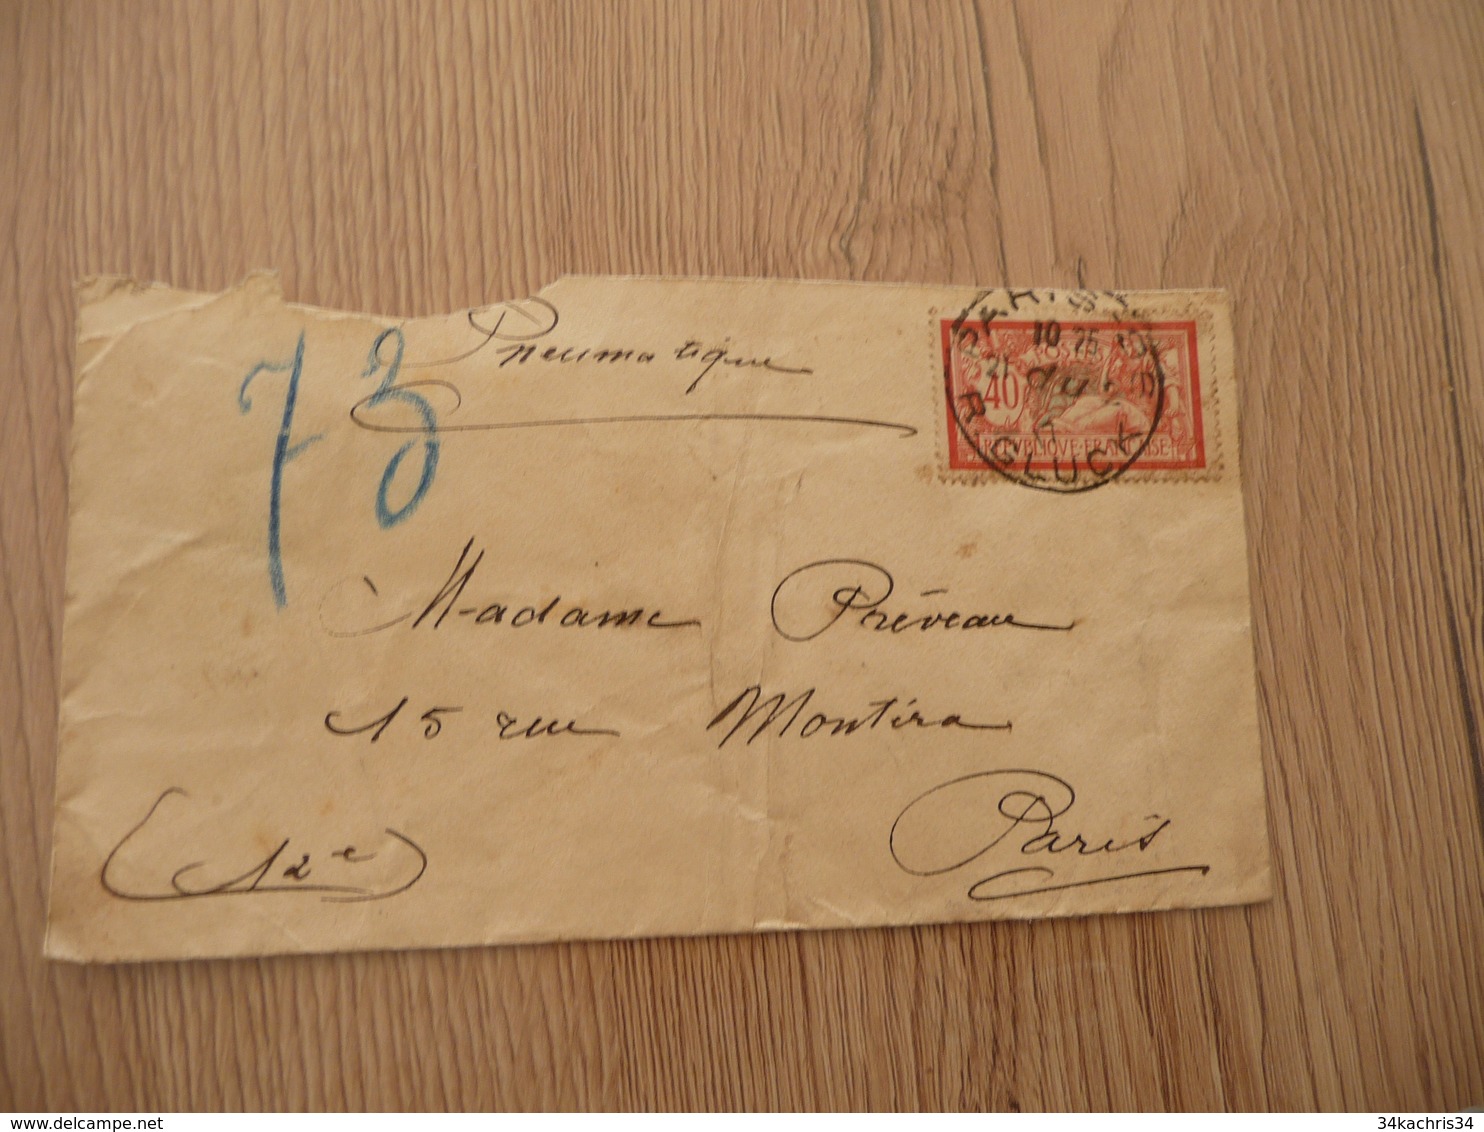 73
Pneumatique
PARIS
10 25
21
R. GLUCK
POSTES
40
REPVBLIQVE FRANÇAISE
Madame Préveau
15 rue Montéra
Paris
(12e)
34kachris34